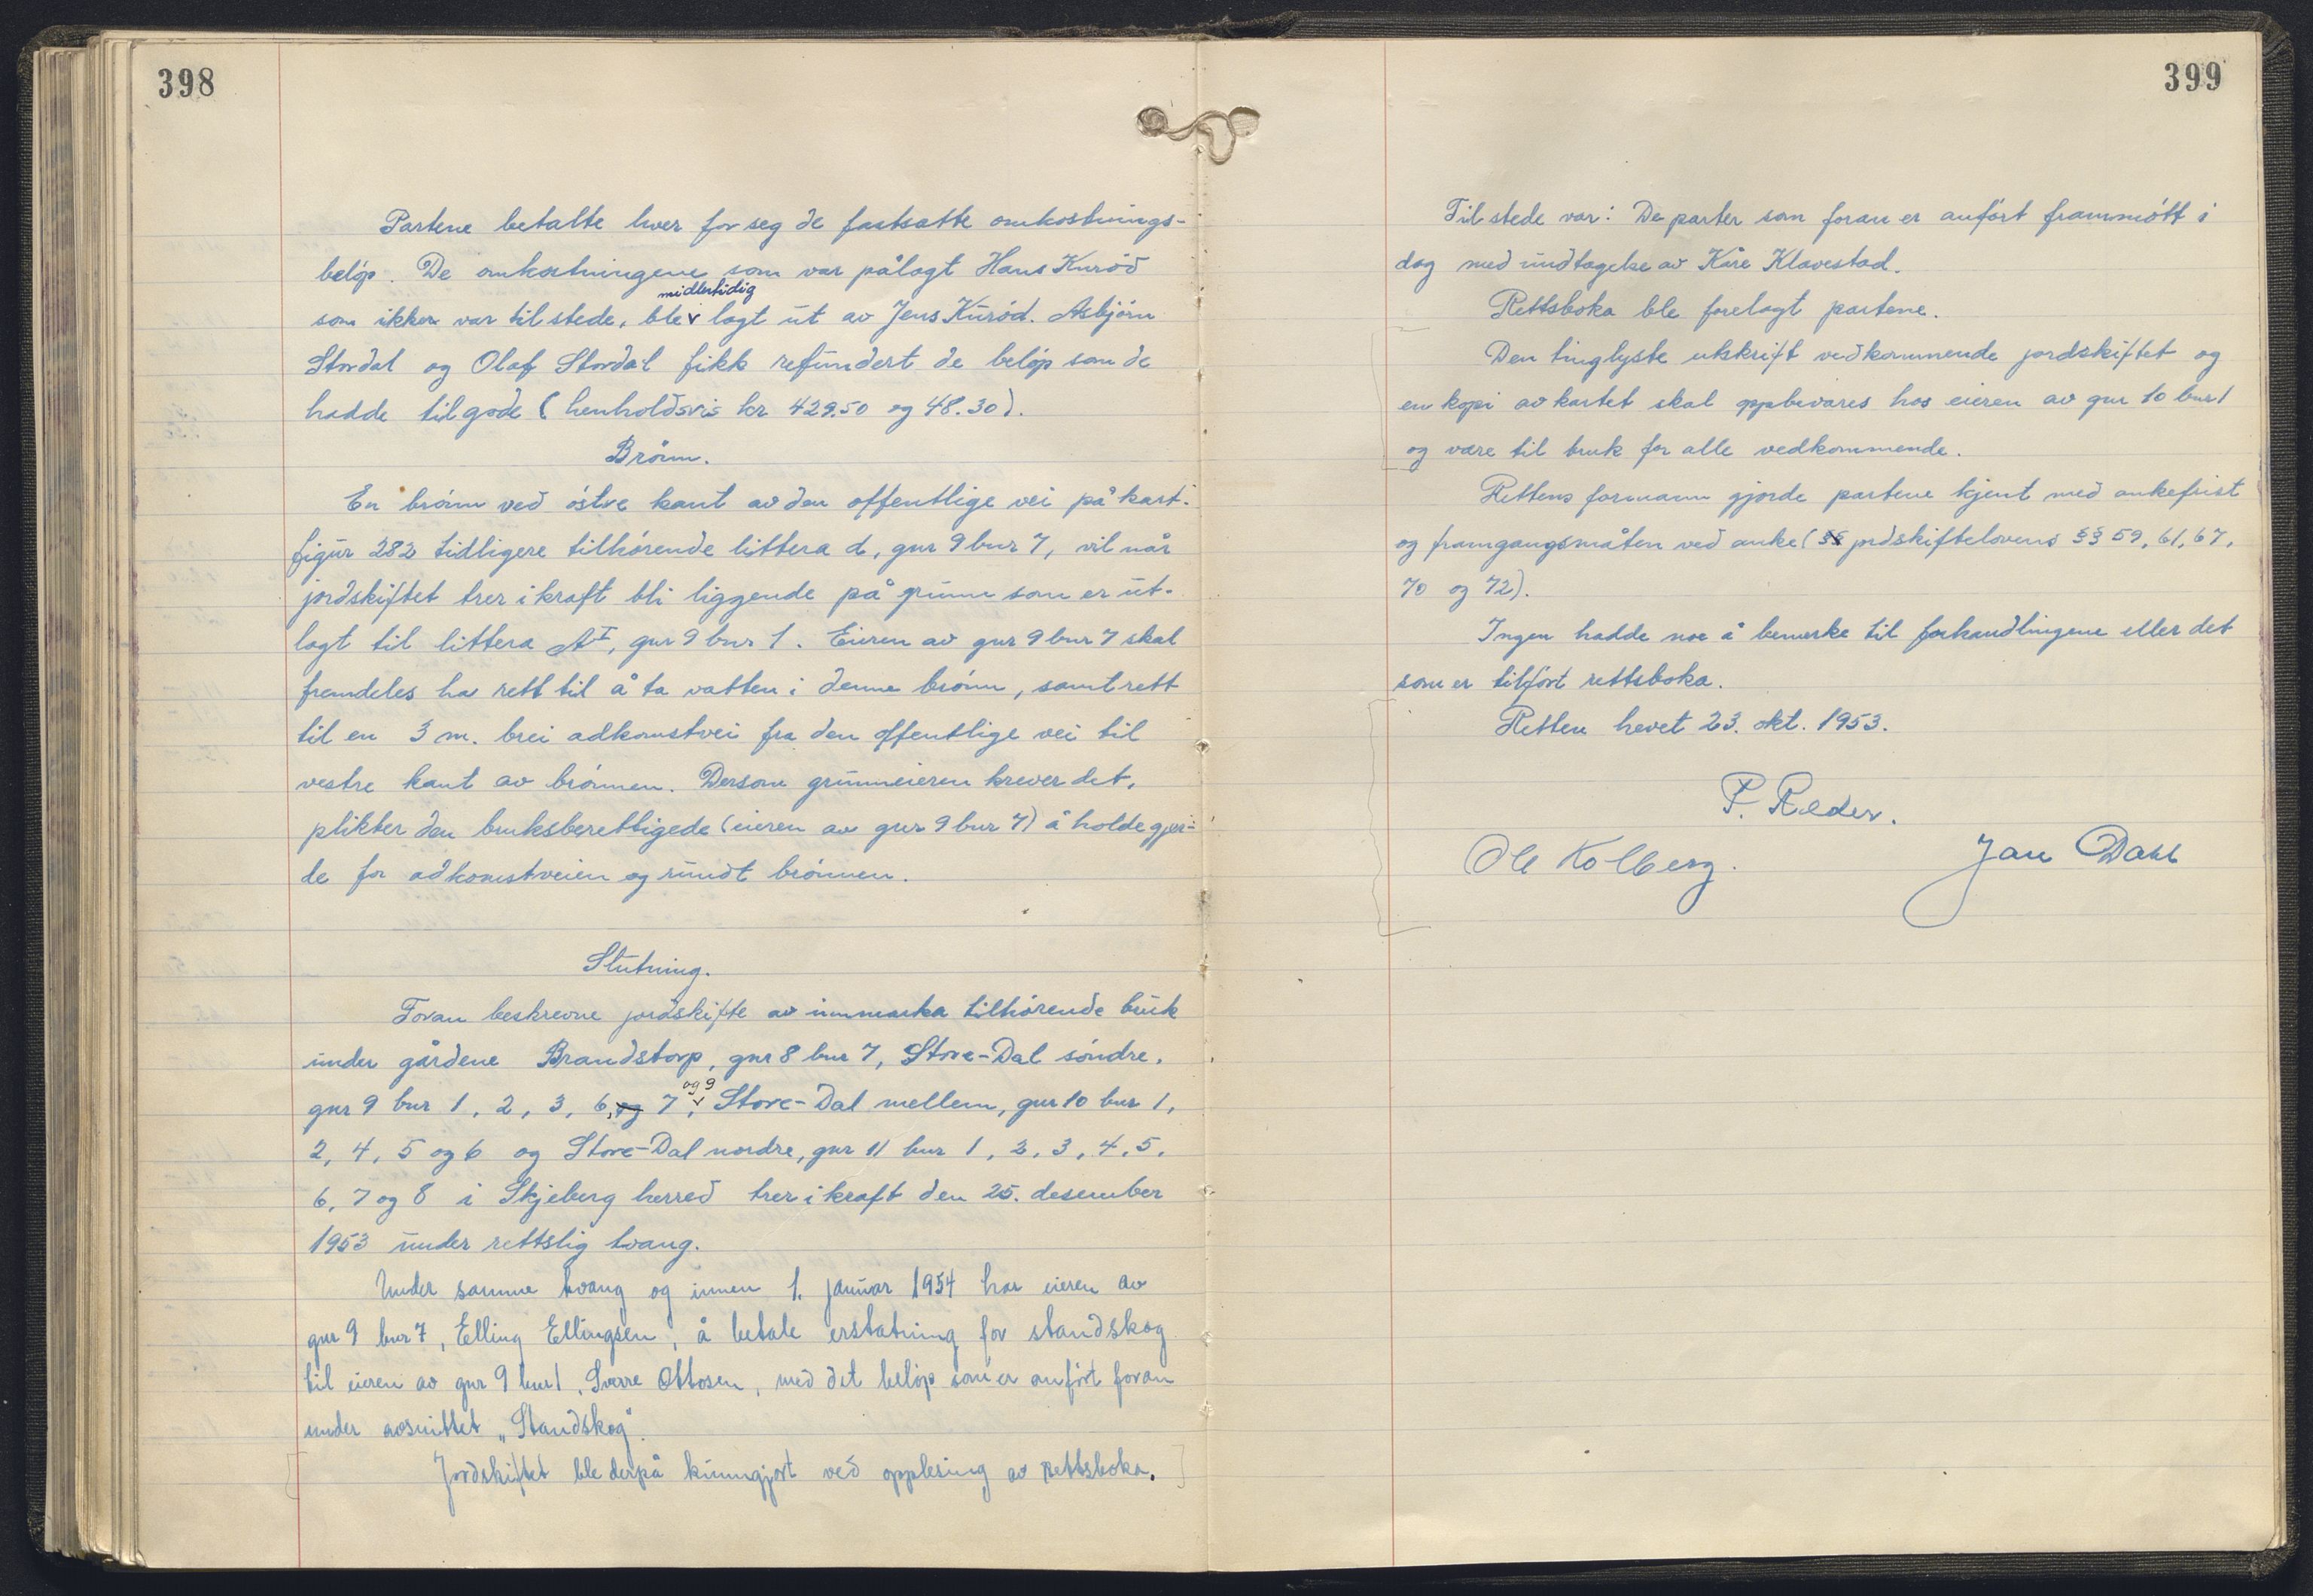 398
Partene betalte hver for seg de fastsatte omkostnings-
beløp. De omkostningene som var pålagt Hans Kurød
som ikke var tilstede, ble midlertidig lagt ut av Jens Kurød. Asbjørn
Stordal og Olaf Stordal fikk refundert de beløp som de
hadde tilgode (henholdsvis kr 429.50 og 48.30).
Brønn.
En brønn ved østre kant av den offentlige vei på kart-
figur 282 tidligere tilhørende littera d, gnr 9 bnr 7, vil når
jordskiftet trer i kraft bli liggende på grunn som er ut-
lagt til littera A I, gnr 9 bnr 1. Eieren av gnr 9 bnr 7 skal
fremdeles ha rett til å ta vatten i denne brønn, samt rett
til en 3 m. brei adkomstvei fra den offentlige vei til
vestre kant av brønnen. Dersom grunneieren krever det,
plikter den bruksberettigede (eieren av gnr 9 bnr 7) å holde gjer-
de for adkomstveien og rundt brønnen.
Slutning.
Foran beskrevne jordskifte av innmarka tilhørende bruk
under gårdene Brandstorp, gnr 8 bnr 7, Store-Dal søndre,
gnr 9 bnr 1, 2, 3, 6, og 7 og 9, Store-Dal mellem, gnr 10 bnr 1,
2, 4, 5 og 6 og Store-Dal nordre, gnr 11 bnr 1, 2, 3, 4, 5,
6, 7 og 8 i Skjeberg herred trer i kraft den 25. desember
1953 under rettslig tvang.
Under samme tvang og innen 1. januar 1954 har eieren av
gnr 9 bnr 7, Elling Ellingsen, å betale erstatning for standskog
til eieren av gnr 9 bnr 1, Sverre Ottosen, med det beløp som er anført foran
under avsnittet "Standskog".
[Jordskiftet ble derpå kunngjort ved opplesing av rettsboka.]
399
Tilstede var: De parter som foran er anført frammøtt i
dag med undtagelse av Kåre Klavestad.
Rettsboka ble forelagt partene.
Den tinglyste utskrift vedkommende jordskiftet og
en kopi av kartet skal oppbevares hos eieren av gnr 10 bnr 1
og være til bruk for alle vedkommende.
Rettens formann gjorde partene kjent med ankefrist
og framgangsmåten ved anke (§§ jordskiftelovens §§ 59, 61, 67,
70 og 72).
Ingen hadde noe å bemerke til forhandlingene eller det
som er tilført rettsboka.
Retten hevet 23. okt. 1953.
P. Ræder.
Ole Kolberg. Jan Dahl